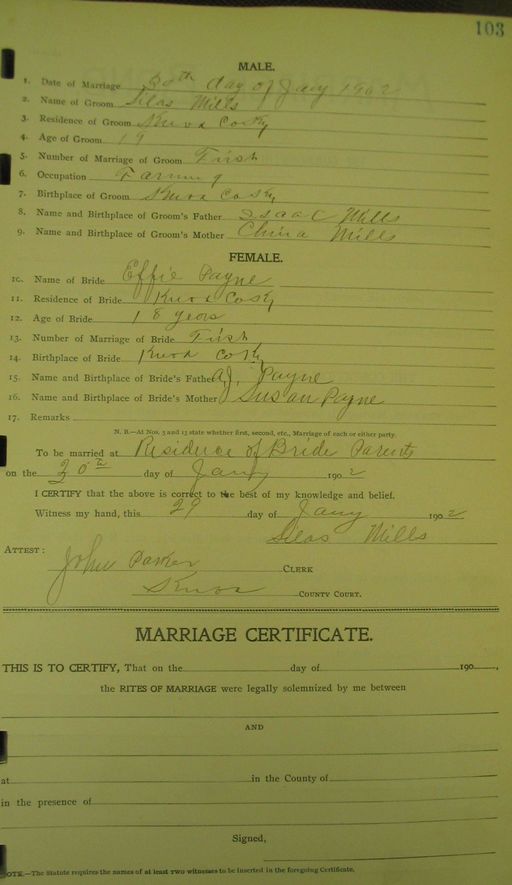 103
MALE.
1. Date of Marriage 30th day of Jany 1902
2. Name of Groom Silas Mills
3. Residence of Groom Knox Co Ky
4. Age of Groom 19
5. Number of Marriage of Groom First
6. Occupation Farming
7. Birthplace of Groom Knox Co Ky
8. Name and Birthplace of Groom's Father Isaac Mills
9. Name and Birthplace of Groom's Mother Mills
FEMALE.
10. Name of Bride Effie Payne
11. Residence of Bride Knox Co Ky
12. Age of Bride 18 years
13. Number of Marriage of Bride First
14. Birthplace of Bride Knox Co Ky
15. Name and Birthplace of Bride's Father A.J. Payne
16. Name and Birthplace of Bride's Mother Susan Payne
17. Remarks
N. B.—At Nos. 5 and 13 state whether first, second, etc., Marriage of each or either party.
To be married at Residence of Bride Parents
on the 30th day of Jany 1902
I CERTIFY that the above is correct to the best of my knowledge and belief.
Witness my hand, this 29 day of Jany 1902
Silas Mills
ATTEST:
John Parker CLERK
Knox COUNTY COURT.
MARRIAGE CERTIFICATE.
THIS IS TO CERTIFY, That on the day of 190 .
the RITES OF MARRIAGE were legally solemnized by me between
AND
at in the County of
in the presence of
Signed,
OTE.—The Statute requires the names of at least two witnesses to be inserted in the foregoing Certificate.